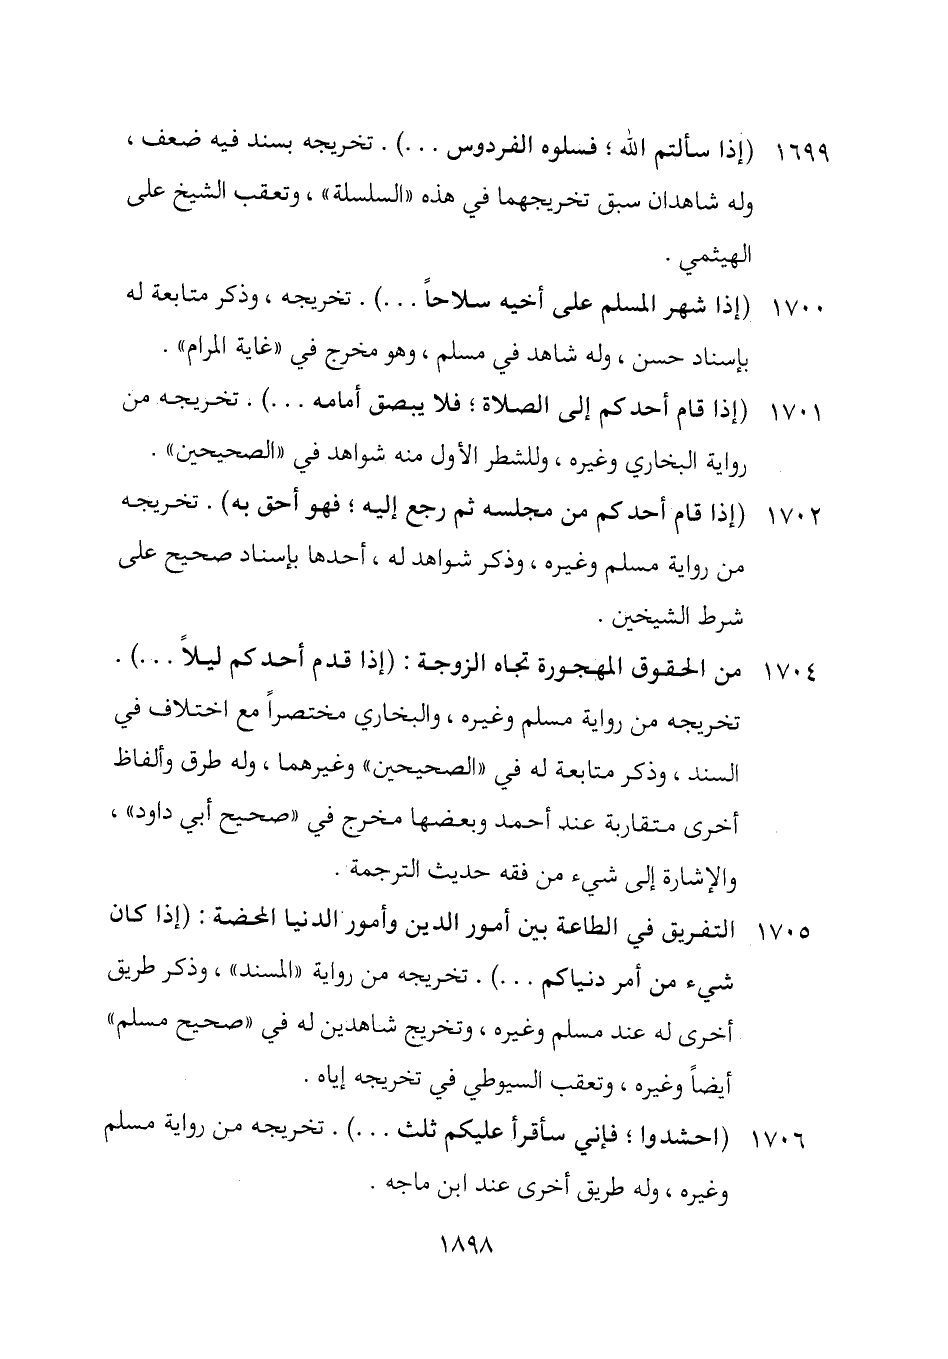 ١٦٩٩ (إذا سألتم الله ؛ فسلوه الفردوس ...) . تخريجه بسند فيه ضعف ،
وله شاهدان سبق تخريجهما في هذه «السلسلة» ، وتعقب الشيخ على
الهيثمي .
١٧٠٠ (إذا شهر المسلم على أخيه سلاحاً ...) . تخريجه ، وذكر متابعة له
بإسناد حسن ، وله شاهد في مسلم ، وهو مخرج في «غاية المرام» .
١٧٠١ (إذا قام أحدكم إلى الصلاة ؛ فلا يبصق أمامه ...) . تخريجه من
رواية البخاري وغيره ، وللشطر الأول منه شواهد في «الصحيحين» .
١٧٠٢ (إذا قام أحدكم من مجلسه ثم رجع إليه ؛ فهو أحق به) . تخريجه
من رواية مسلم وغيره ، وذكر شواهد له ، أحدها بإسناد صحيح على
شرط الشيخين .
١٧٠٤ من الحقوق المهجورة تجاه الزوجة : (إذا قدم أحدكم ليلاً ...) .
تخريجه من رواية مسلم وغيره ، والبخاري مختصراً مع اختلاف في
السند ، وذكر متابعة له في «الصحيحين» وغيرهما ، وله طرق وألفاظ
أخرى متقاربة عند أحمد وبعضها مخرج في «صحيح أبي داود» ،
والإشارة إلى شيء من فقه حديث الترجمة .
١٧٠٥ التفريق في الطاعة بين أمور الدين وأمور الدنيا المحضة : (إذا كان
شيء من أمر دنياكم ...) . تخريجه من رواية «المسند» ، وذكر طريق
أخرى له عند مسلم وغيره ، وتخريج شاهدين له في «صحيح مسلم»
أيضاً وغيره ، وتعقب السيوطي في تخريجه إياه .
١٧٠٦ (احشدوا ؛ فإني سأقرأ عليكم ثلث ...) . تخريجه من رواية مسلم
وغيره ، وله طريق أخرى عند ابن ماجه .
١٨٩٨